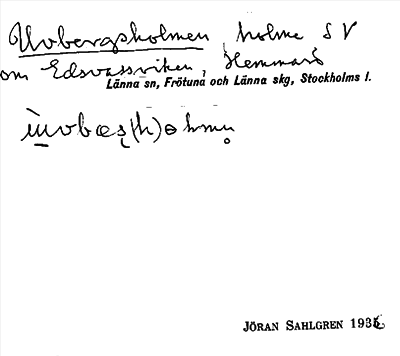 Uvbergsholmen, holme S V
om Edsvassviken, Hemmarö
Länna sn, Frötuna och Länna skg, Stockholms l.
JÖRAN SAHLGREN 1936